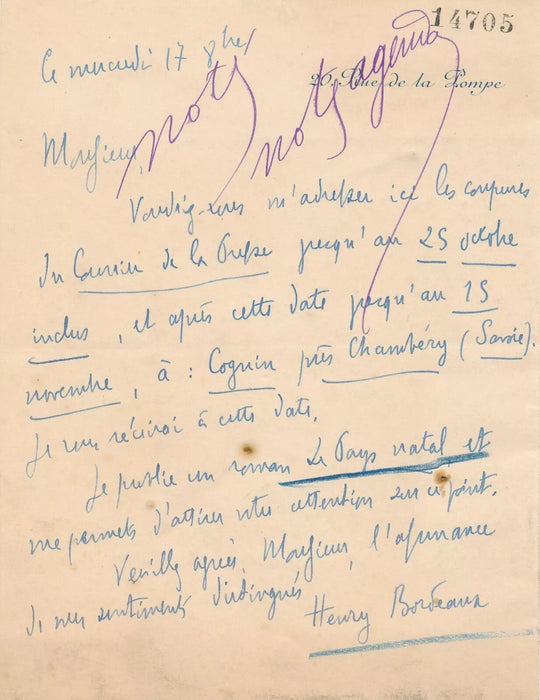 14705
Ce mercredi 17 8bre
20, Rue de la Pompe
noté
noté agenda
Monsieur,
Voudriez-vous m'adresser ici les coupures
du Courrier de la Presse jusqu'au 25 octobre
inclus, et après cette date jusqu'au 15
novembre, à : Cognin près Chambéry (Savoie).
Je vous récrirai à cette date.
Je publie un roman Le Pays natal et
me permets d'attirer votre attention sur ce point.
Veuillez agréer, Monsieur, l'assurance
de mes sentiments distingués
Henry Bordeaux